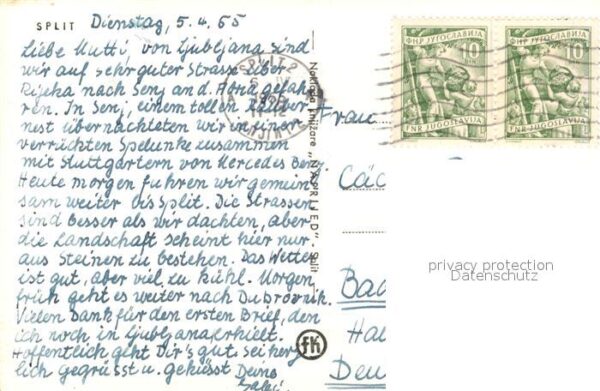 SPLIT
Dienstag, 5.4.65
Liebe Mutti, von Ljubljana sind
wir auf sehr guter Strasse über
Rijeka nach Senj an d. Adria gefah-
ren. In Senj, einem tollen Räuber-
nest übernachteten wir in einer
verrückten Spelunke zusammen
mit Stuttgartern von Mercedes Benz.
Heute morgen fuhren wir gemein-
sam weiter bis Split. Die Strassen
sind besser als wir dachten, aber
die Landschaft scheint hier nur
aus Steinen zu bestehen. Das Wetter
ist gut, aber viel zu kühl. Morgen
früh geht es weiter nach Dubrovnik.
Vielen Dank für den ersten Brief, den
ich noch in Ljubljana erhielt.
Hoffentlich geht Dir's gut, sei herz-
lich gegrüsst u. geküsst Deine
SPLIT 2
Naklada knjižare "NAPRIJED" - Split
fk
Frau
Các
Bad
Ha
Deu
ФНР ЈУГОСЛАВИЈА
10
DIN
FNR JUGOSLAVIJA
ФНР ЈУГОСЛАВИЈА
10
FNR JUGOSLAVIJA
privacy protection
Datenschutz